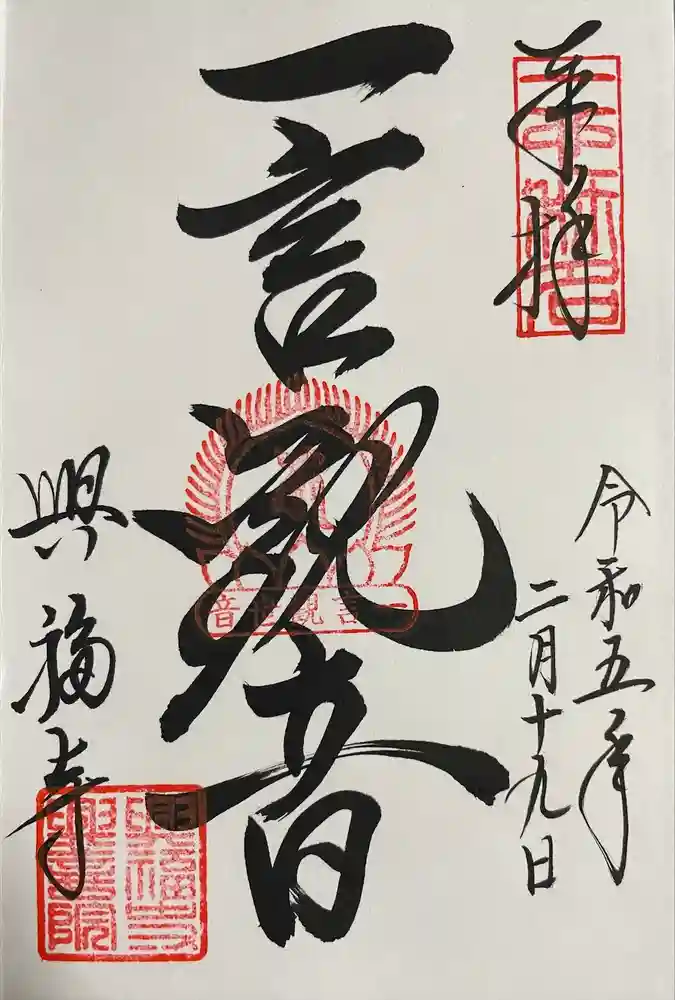 奉拝
令和五年
二月十九日
一言観音
一言観世音
興福寺